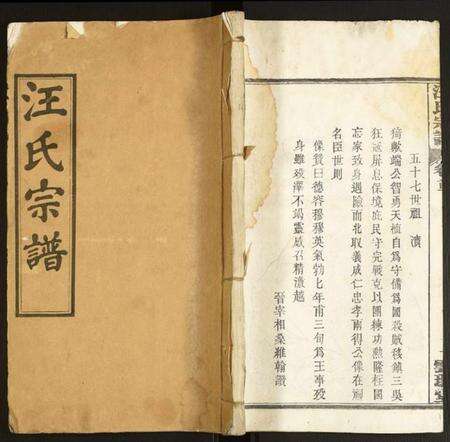 汪氏宗譜
五十七世祖 濆
猗歟端公智勇天植自為守備為國殺賊殘鎮三吳
狂逆屏息保境庶民守完戰克以團練功熱隆枉國
忘家致身遇險而北取義成仁忠孝兩得公像在廟
名臣世則
像贊曰德容穆穆英氣勃七年甫三旬為王事歿
身雖歿澤不竭靈威召精激越
晉宰相桑維翰讚
汪氏宗譜
卷首